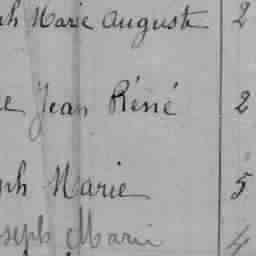 ph Marie Auguste 2
e Jean Réné 2
ph Marie 5
seph Marie 4